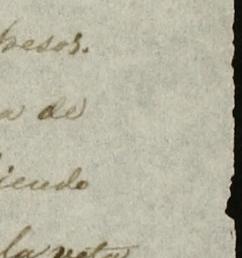 pesos.
a de
iendo
la veta